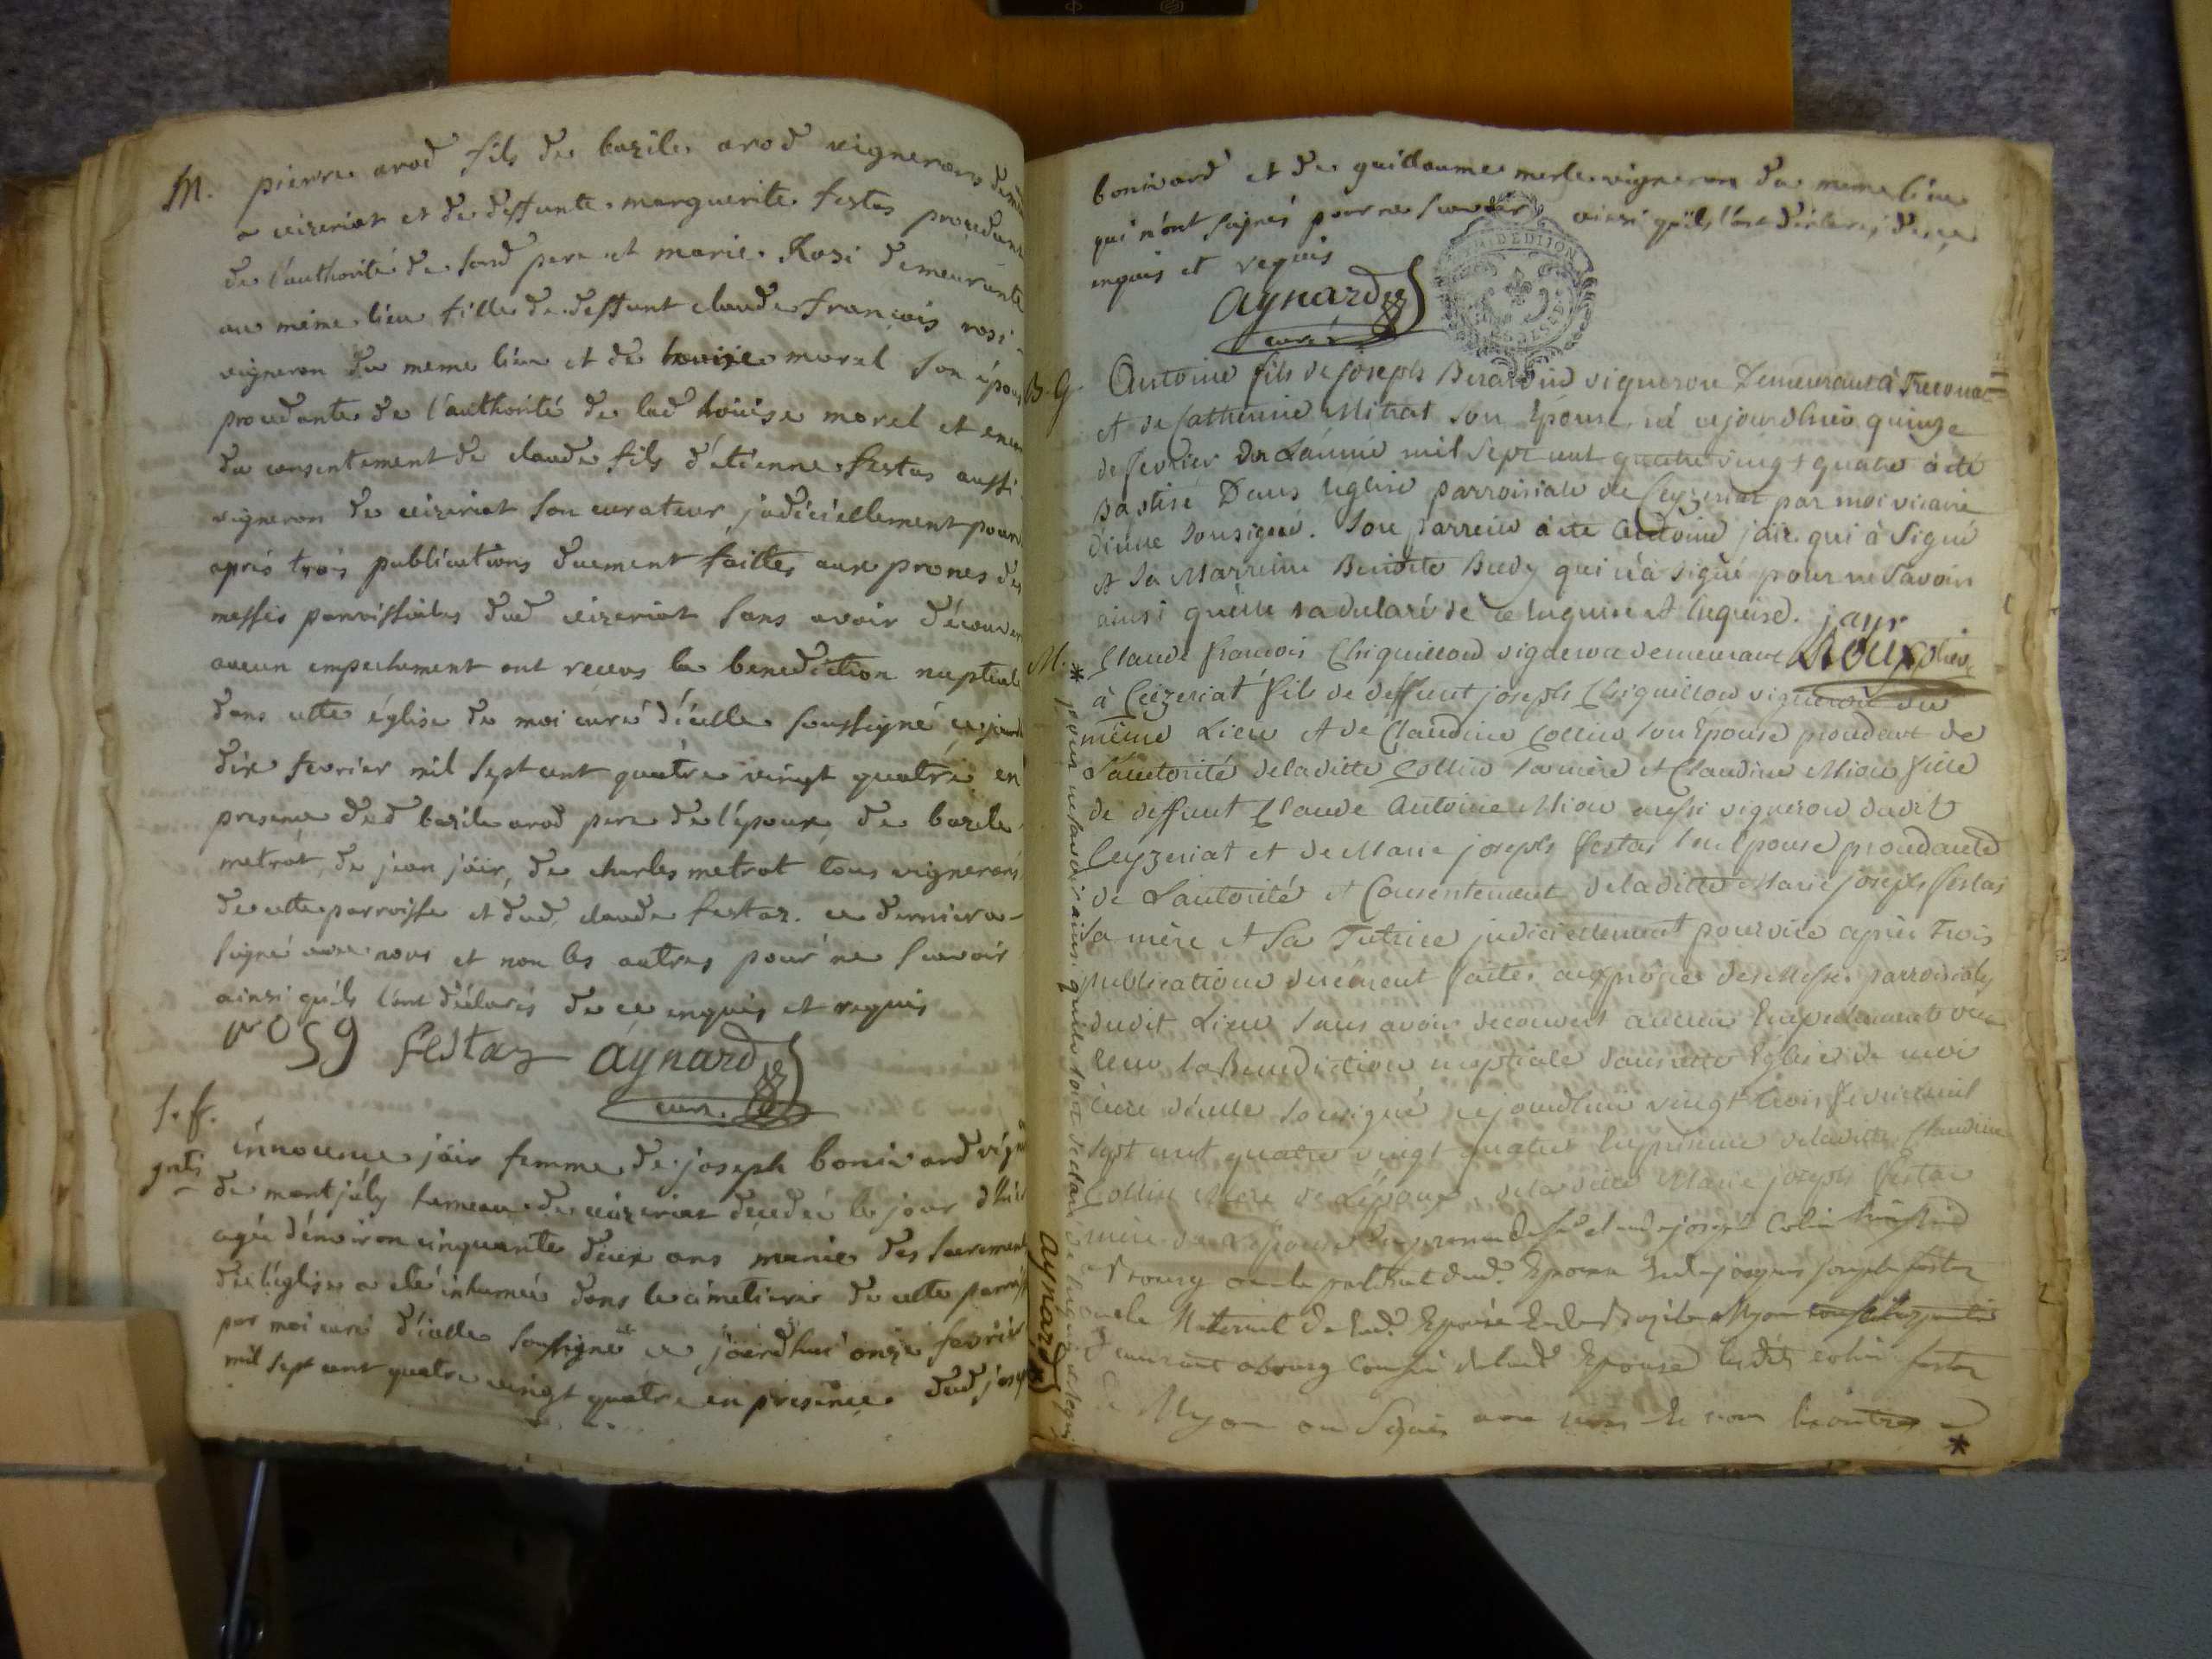 M. pierre arod fils de bazile arod vigneron
a ceizeriat et de deffunte marguerite festas procedant
de l'authorité de sond pere et marie Rosi demeurante
au même lieu fille de deffunt claude françois rosi
vigneron du meme lieu et de louise morel son épouse
procedante de l'authorité de lad louise morel et encor
du consentement de claude fils d'etienne festas aussi
vigneron de ceizeriat son curateur judiciellement pourvu
aprés trois publications duement faittes aux prones des
messes parroissiales dud ceizeriat sans avoir découvert
aucun empechement ont recus la benediction nuptiale
dans cette église de moi curé d'icelle soussigné
dix fevrier mil sept cent quatre vingt quatre en
presence dud bazile arod pere de l'époux, de bazile
metrat, de jean jäir, de charles metrat tous vignerons
de cette parroisse et dud. claude festaz. ce dernier a
signé avec nous et non les autres pour ne scavoir
ainsi qu'ils l'ont déclarés de ce enquis et requis
festaz aynard
curé
s. f.
gratis
innocence jäir femme de joseph bonivard
de montjuly hameau de ceizeriat decedeé le jour d'hier
agée d'environ cinquante deux ans munie des sacrements
de l'église a eté inhumeé dans le cimetiere de cette
par moi curé d'icelle soussigné ce jourdhui onze fevrier
mil sept cent quatre vingt quatre en presence dud
bonivard et de guillaume merle vigneron du meme lieu
qui n'ont signés pour ne scavoir ainsi qu'ils l'ont déclarés de ce
enquis et requis
aynard
curé
B. G. Antoine fils de joseph Berardin vigneron Demeurant à
et de Catherine Mitrat son Epouse, né cejourdhuis quinze
de fevrier de L'annéé mil sept cent quatre vingt quatre à été
Batisé Dans leglise parroisiale de Ceyzeriat par moi vicaire
d'icelle sousigné. Son parrein à été Antoine jäir qui à signé
et sa Marreine Benoite Budy qui n'à signé pour ne savoir
ainsi qu'elle la declaré de ce enquise et requise. jayr
Roux
M. * Claude francois Chiquillond vigneron demeurant
à Ceizeriat fils de deffunt joseph Chiquillon vigneron du
même Lieu et de Claudine Collin son Epouse procedant de
L'autorité de laditte Collin sa mère et Claudine Mion fille
de deffunt Claude Antoine Mion aussi vigneron dudit
Ceyzeriat et de Marie joseph festas son Epouse procedante
de L'autorité et Consentement de laditte Marie joseph festas
sa mère et sa Tutrice judiciellement pourvue après trois
publications duement faites aux prônes des Messes parroisiales
dudit Lieu sans avoir decouvert aucun Empechement ont
recu la Benediction nuptiale dans cette Eglise de moi
Curé d'icelle sousigné cejourdhui vingt trois fevrier mil
sept cent quatre vingt quatre En présence de laditte Claudine
Collin Mère de L'Epoux, de laditte Marie joseph festas
mère de L'Epouse joseph Colin
a bourg oncle paternel dud. Epoux joseph festaz
oncle Maternel de lad. Epouse Myon
demeurant a bourg Cousin de lad. Epouse lesdits colin festaz
Myon on Signés avec nous et non les autres
*
* pour ne savoir ainsi quils l'ont declaré de ce enquis et requis
aynard